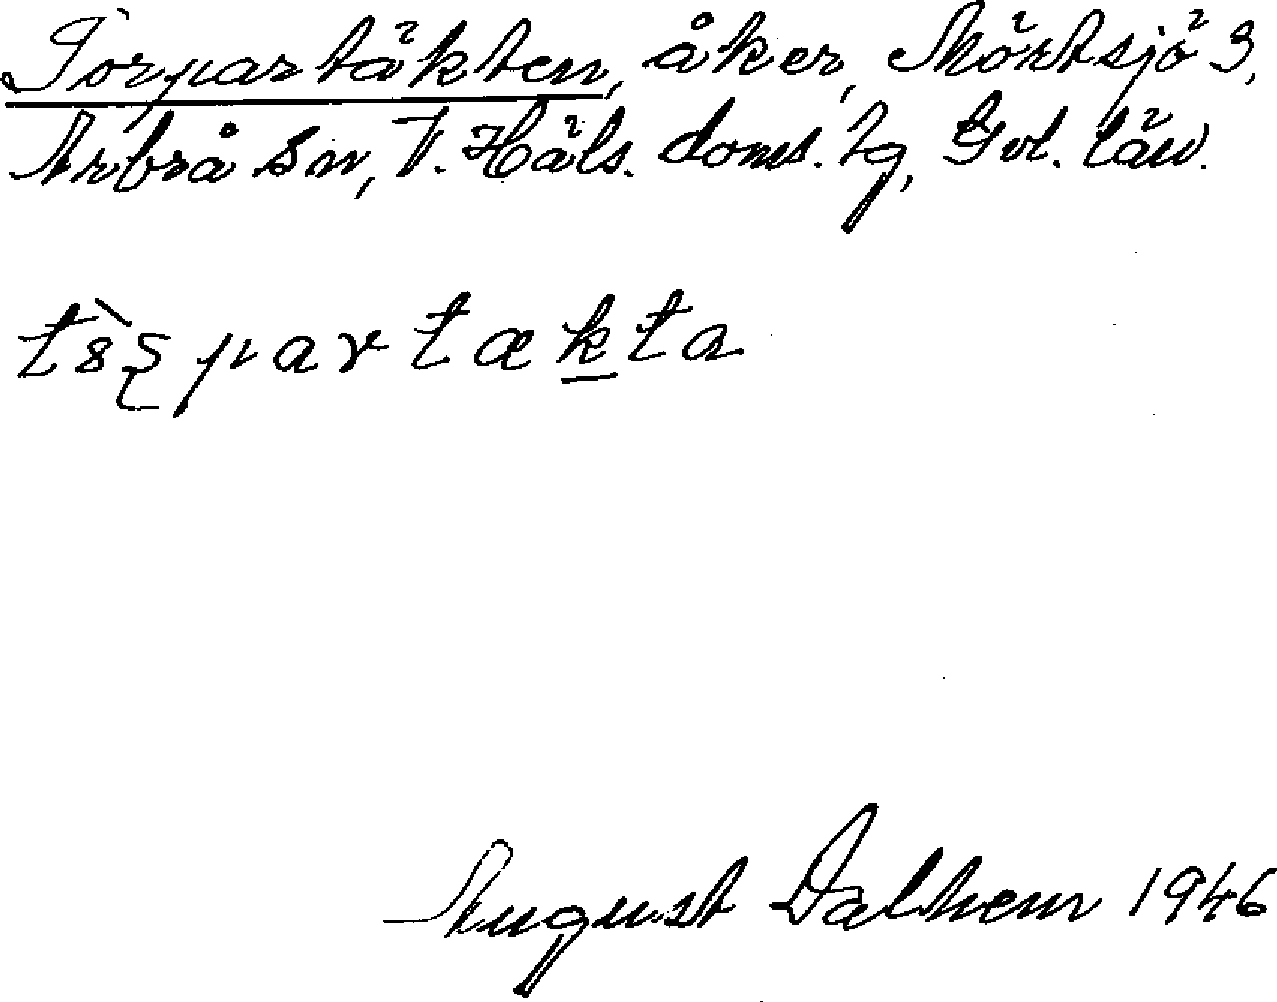 Torpartäkten, åker, Mörtsjö 3,
Arbrå sn, V. Häls. doms. tg, Gvl. län.
tȣ̀ʂpartækta
August Dalhem 1946